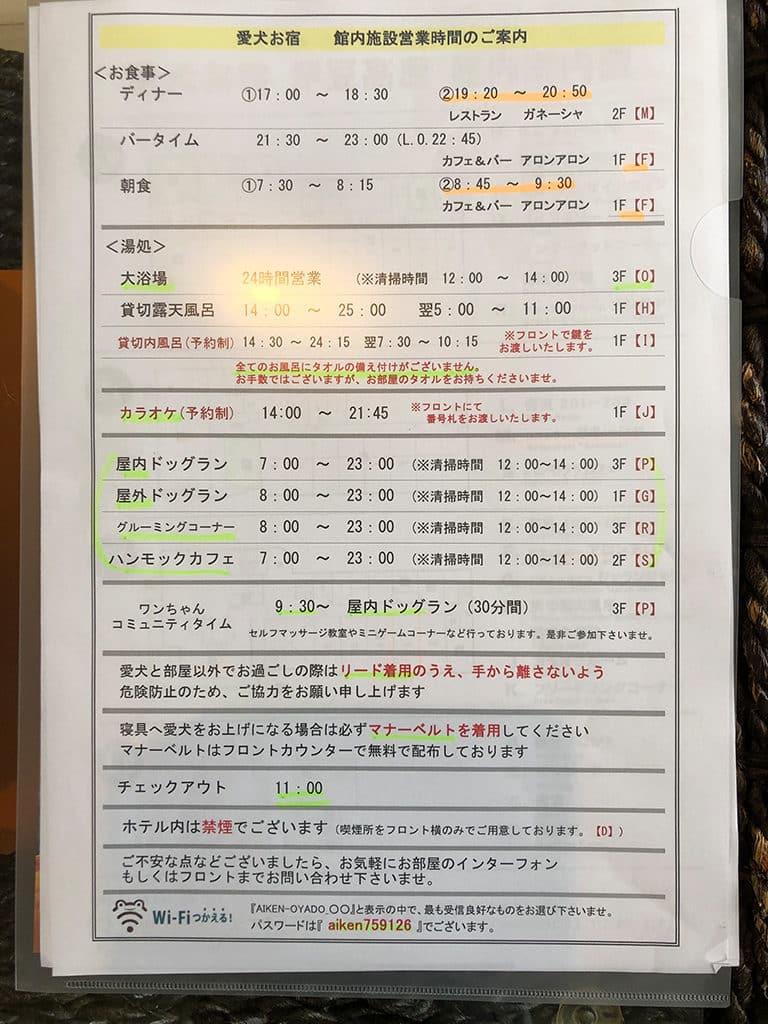 愛犬お宿　館内施設営業時間のご案内
＜お食事＞
ディナー ①17：00 ～ 18：30 ②19：20 ～ 20：50
レストラン ガネーシャ 2F【M】
バータイム 21：30 ～ 23：00（L.O.22：45）
カフェ＆バー アロンアロン 1F【F】
朝食 ①7：30 ～ 8：15 ②8：45 ～ 9：30
カフェ＆バー アロンアロン 1F【F】
＜湯処＞
大浴場 24時間営業 （※清掃時間 12：00 ～ 14：00） 3F【O】
貸切露天風呂 14：00 ～ 25：00 翌5：00 ～ 11：00 1F【H】
貸切内風呂（予約制） 14：30 ～ 24：15 翌7：30 ～ 10：15 ※フロントで鍵を
お渡しいたします。 1F【I】
全てのお風呂にタオルの備え付けがございません。
お手数ではございますが、お部屋のタオルをお持ちくださいませ。
カラオケ（予約制） 14:00 ～ 21:45 ※フロントにて
番号札をお渡しいたします。 1F【J】
屋内ドッグラン 7：00 ～ 23：00 （※清掃時間 12：00～14：00） 3F【P】
屋外ドッグラン 8：00 ～ 23：00 （※清掃時間 12：00～14：00） 1F【G】
グルーミングコーナー 8：00 ～ 23：00 （※清掃時間 12：00～14：00） 3F【R】
ハンモックカフェ 7：00 ～ 23：00 （※清掃時間 12：00～14：00） 2F【S】
ワンちゃん
コミュニティタイム 9：30～ 屋内ドッグラン（30分間） 3F【P】
セルフマッサージ教室やミニゲームコーナーなど行っております。是非ご参加下さいませ。
愛犬と部屋以外でお過ごしの際はリード着用のうえ、手から離さないよう
危険防止のため、ご協力をお願い申し上げます
寝具へ愛犬をお上げになる場合は必ずマナーベルトを着用してください
マナーベルトはフロントカウンターで無料で配布しております
チェックアウト 11：00
ホテル内は禁煙でございます（喫煙所をフロント横のみでご用意しております。【D】）
ご不安な点などございましたら、お気軽にお部屋のインターフォン
もしくはフロントまでお問い合わせ下さいませ。
Wi-Fiつかえる！ 『AIKEN-OYADO_〇〇』と表示の中で、最も受信良好なものをお選び下さいませ。
パスワードは『 aiken759126 』でございます。